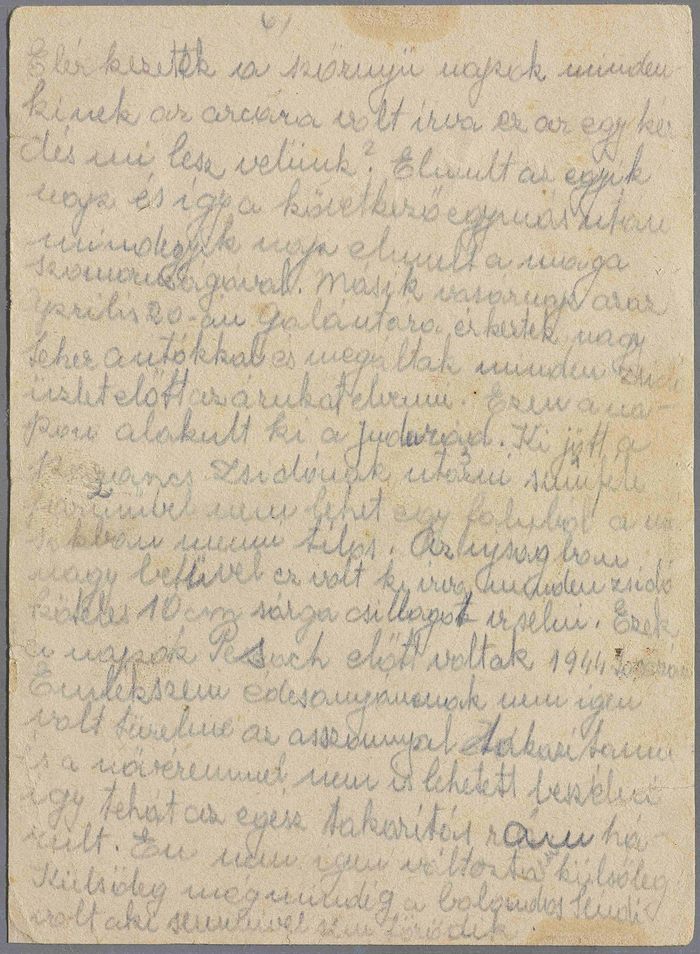 6/
Elérkeztek a szörnyü napok minden-
kinek az arcára volt irva ez az egy kér
dés mi lesz velünk? Elmult az egyik
nap és igy a következő egymás utan
mindegyik nap elmult a maga
szomoruságaval. Másik vasarnap azaz
Április 20-án Galántara érkeztek nagy
teherautókkal és megáltak minden zsidó
üzlet előtt az árukat elvinni. Ezen a na-
pon alakult ki a Judenrád. Ki jött a
parancs Zsidónak utazni semmiféle
nem lehet egy faluból a má
sikban menni tilos. Az ujságban
nagy betüvel ez volt ki irva minden zsidó
köteles 10 cm sárga csillagot viselni. Ezek
a napok Pesach előtt voltak 1944
Emlékszem édesanyámnak nem igen
volt türelme az asszonnyal takaritani
és a növéremmel nem is lehetett beszélni
igy tehát az egész takaritás rám há-
rult. Én nem igen változta külsőleg.
Külsőleg megmindig a bolondos Lendi
volt aki semmivel sem törödik